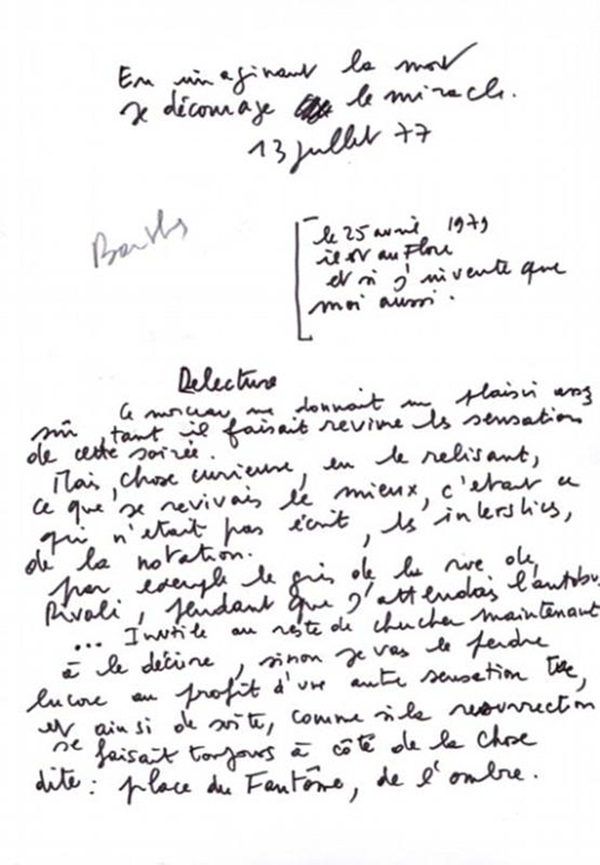 En imaginant la mort
je décourage le miracle.
13 juillet 77
Barthes
le 25 avril 1979
il est au Flore
et si j'invente que
moi aussi.
Relecture
Ce morceau me donnait un plaisir assez
sûr, tant il faisait revivre les sensations
de cette soirée.
Mais, chose curieuse, en le relisant,
ce que je revivais le mieux, c'était ce
qui n'était pas écrit, les interstices,
de la notation.
par exemple le gris de la rue de
Rivoli, pendant que j'attendais l'autobus
... Inutile au reste de chercher maintenant
à le décrire, sinon je vais le perdre
encore au profit d'une autre sensation tue,
et ainsi de suite, comme si la resurrection
se faisait toujours à côté de la chose
dite : place du Fantôme, de l'ombre.